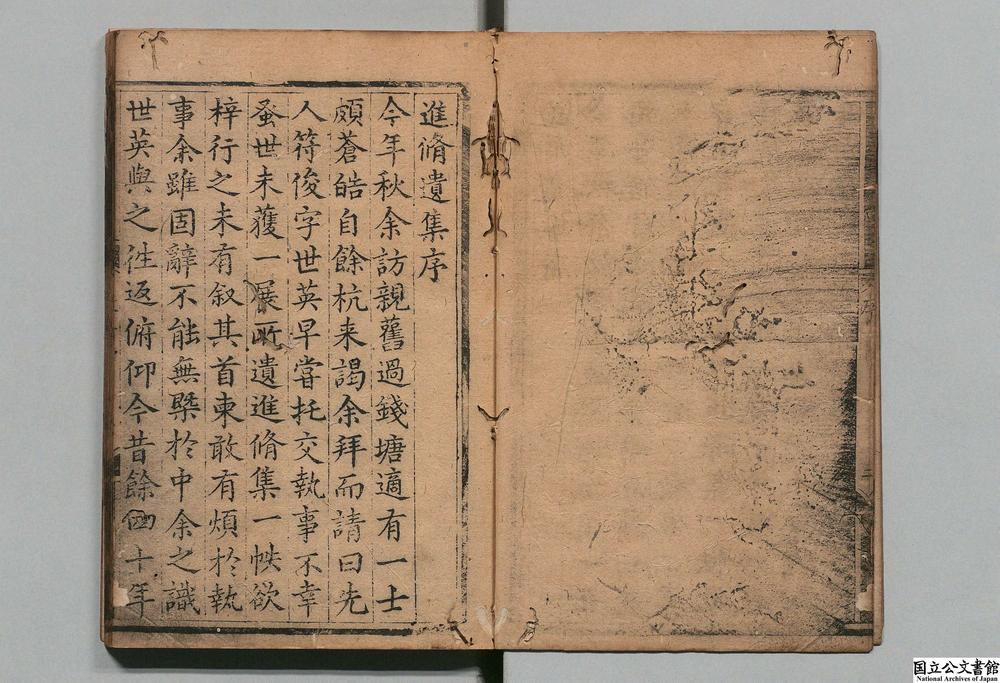 進脩遺集序
今年秋余訪親舊過錢塘適有一士
頗蒼皓自餘杭来謁余拜而請曰先
人符俊字世英早甞托交執事不幸
蚤世未獲一展所遺進脩集一帙欲
梓行之未有叙其首柬敢有煩於執
事余雖固辭不能無槩於中余之識
世英與之徃返俯仰今昔餘四十年
序
国立公文書館
National Archives of Japan